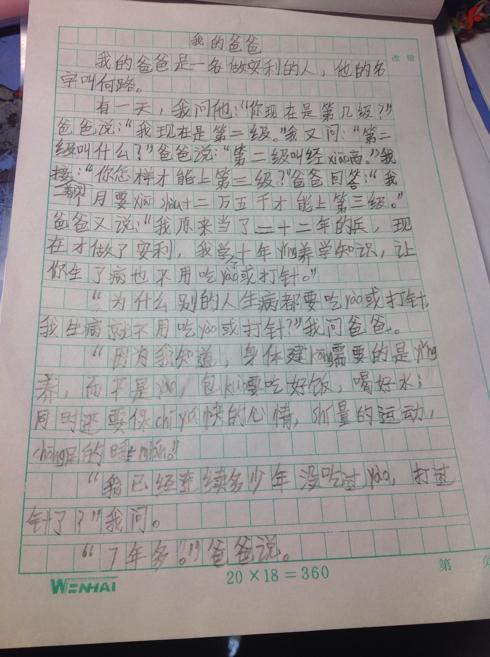 我的爸爸
我的爸爸是一名做安利的人，他的名
字叫何路。
有一天，我问他："你现在是第几级？"
爸爸说："我现在是第二级。"我又问："第二
级叫什么？"爸爸说："第二级叫经xiāo商。"我
接："你怎样才能上第三级？"爸爸回答："我
每月要xiāo shòu十二万五千才能上第三级。"
爸爸又说："我原来当了二十二年的兵，现
在才做了安利，我学十年yíng养学知识，让
你生了病也不用吃yào或打针。"
"为什么别的人生病都要吃yào或打针，
我生病就不用吃yào或打针？"我问爸爸。
"因为我知道，身体建kāng需要的是yíng
养，而不是yào，包kuò要吃好饭，喝好水；
同时还要保chí愉快的心情，所量的运动，
chōng足的睡mián。"
"我已经连续多少年没吃过yào，打过
针了？"我问。
"7年多。"爸爸说。
改错
WENHAI
20×18=360
第 页